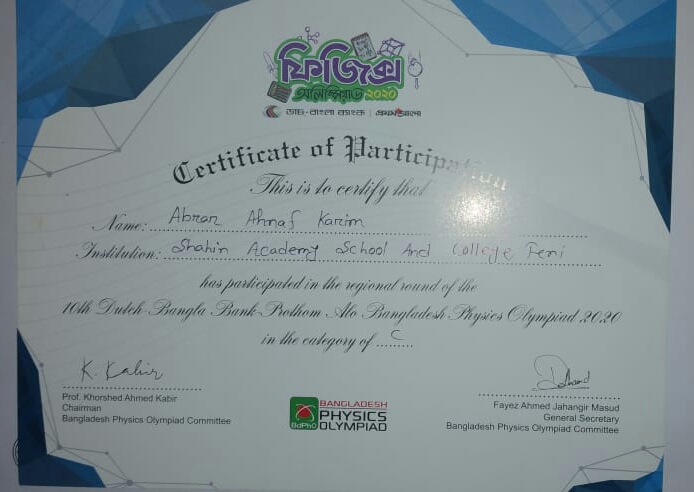 ফিজিক্স
অলিম্পিয়াড ২০২০
ডাচ্-বাংলা ব্যাংক | প্রথম আলো
Certificate of Participation
This is to certify that
Name: Abrar Ahnaf Karim
Institution: Shahin Academy School And College Feni
has participated in the regional round of the
10th Dutch Bangla Bank-Prothom Alo Bangladesh Physics Olympiad 2020
in the category of C
K. Kabir
Prof. Khorshed Ahmed Kabir
Chairman
Bangladesh Physics Olympiad Committee
BdPhO
BANGLADESH
PHYSICS
OLYMPIAD
Fayez Ahmed Jahangir Masud
General Secretary
Bangladesh Physics Olympiad Committee